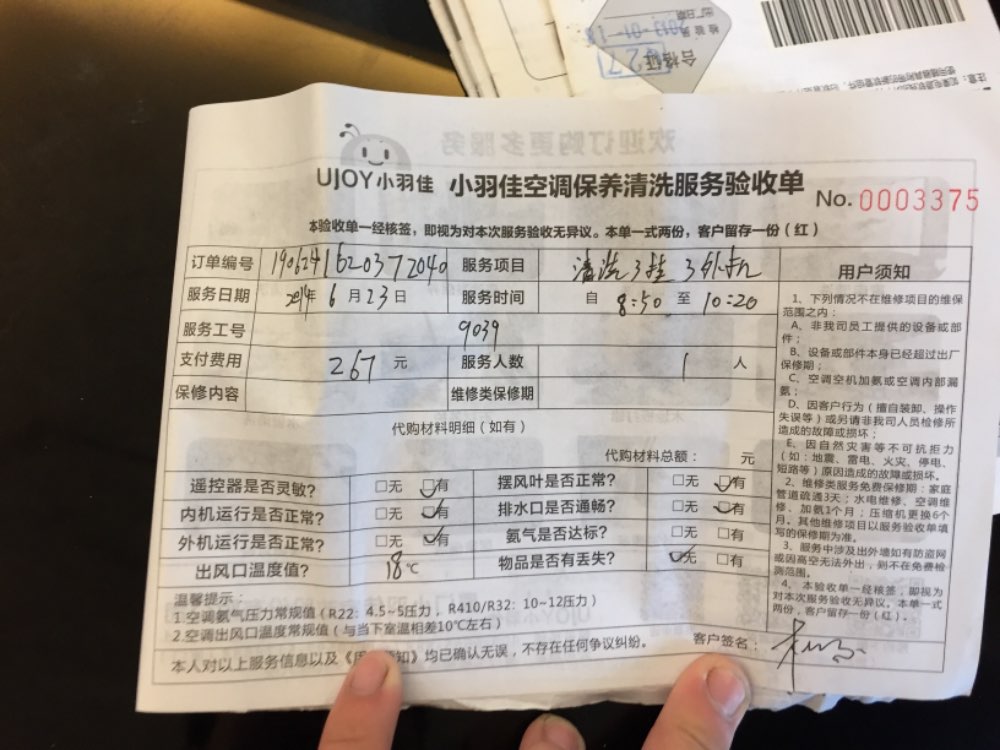 合格证
检验员
2013-01-18
出厂日期
27
注意：
欢迎订购更多服务
UJOY小羽佳 小羽佳空调保养清洗服务验收单 No. 0003375
本验收单一经核签，即视为对本次服务验收无异议。本单一式两份，客户留存一份（红）
订单编号 1906241620372040 服务项目 清洗3挂 3外机
服务日期 2019年 6 月 23 日 服务时间 自 8:50 至 10:20
服务工号 9039
支付费用 267 元 服务人数 1 人
保修内容 维修类保修期
代购材料明细（如有）
代购材料总额： 元
遥控器是否灵敏? □无 □有 摆风叶是否正常? □无 □有
内机运行是否正常? □无 □有 排水口是否通畅? □无 □有
外机运行是否正常? □无 □有 氨气是否达标? □无 □有
出风口温度值? 18℃ 物品是否有丢失? □无 □有
温馨提示：
1.空调氨气压力常规值（R22：4.5~5压力，R410/R32：10~12压力）
2.空调出风口温度常规值（与当下室温相差10℃左右）
本人对以上服务信息以及《用户须知》均已确认无误，不存在任何争议纠纷。 客户签名：
用户须知
1、下列情况不在维修项目的维保
范围之内：
A、非我司员工提供的设备或部
件；
B、设备或部件本身已经超过出厂
保修期；
C、空调空机加氨或空调内部漏
氨；
D、因客户行为（擅自装卸、操作
失误等）或另请非我司人员检修所
造成的故障或损坏；
E、因自然灾害等不可抗拒力
（如：地震、雷电、火灾、停电、
短路等）原因造成的故障或损坏。
2、维修类服务免费保修期：家庭
管道疏通3天；水电维修、空调维
修、加氨1个月；压缩机更换6个
月。其他维修项目以服务验收单填
写的保修期为准。
3、服务中涉及出外墙如有防盗网
或因高空无法外出，则不在免费检
测范围。
4、本验收单一经核签，即视为
对本次服务验收无异议。本单一式
两份，客户留存一份（红）。